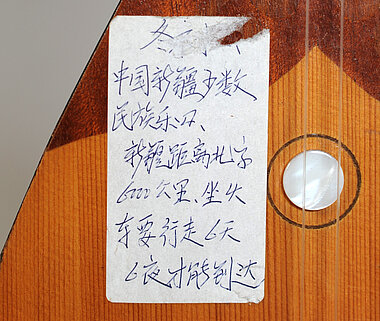 冬
中国新疆少数
民族乐
新疆距离北京
6000公里、坐火
车要行走6天
6夜才能到达